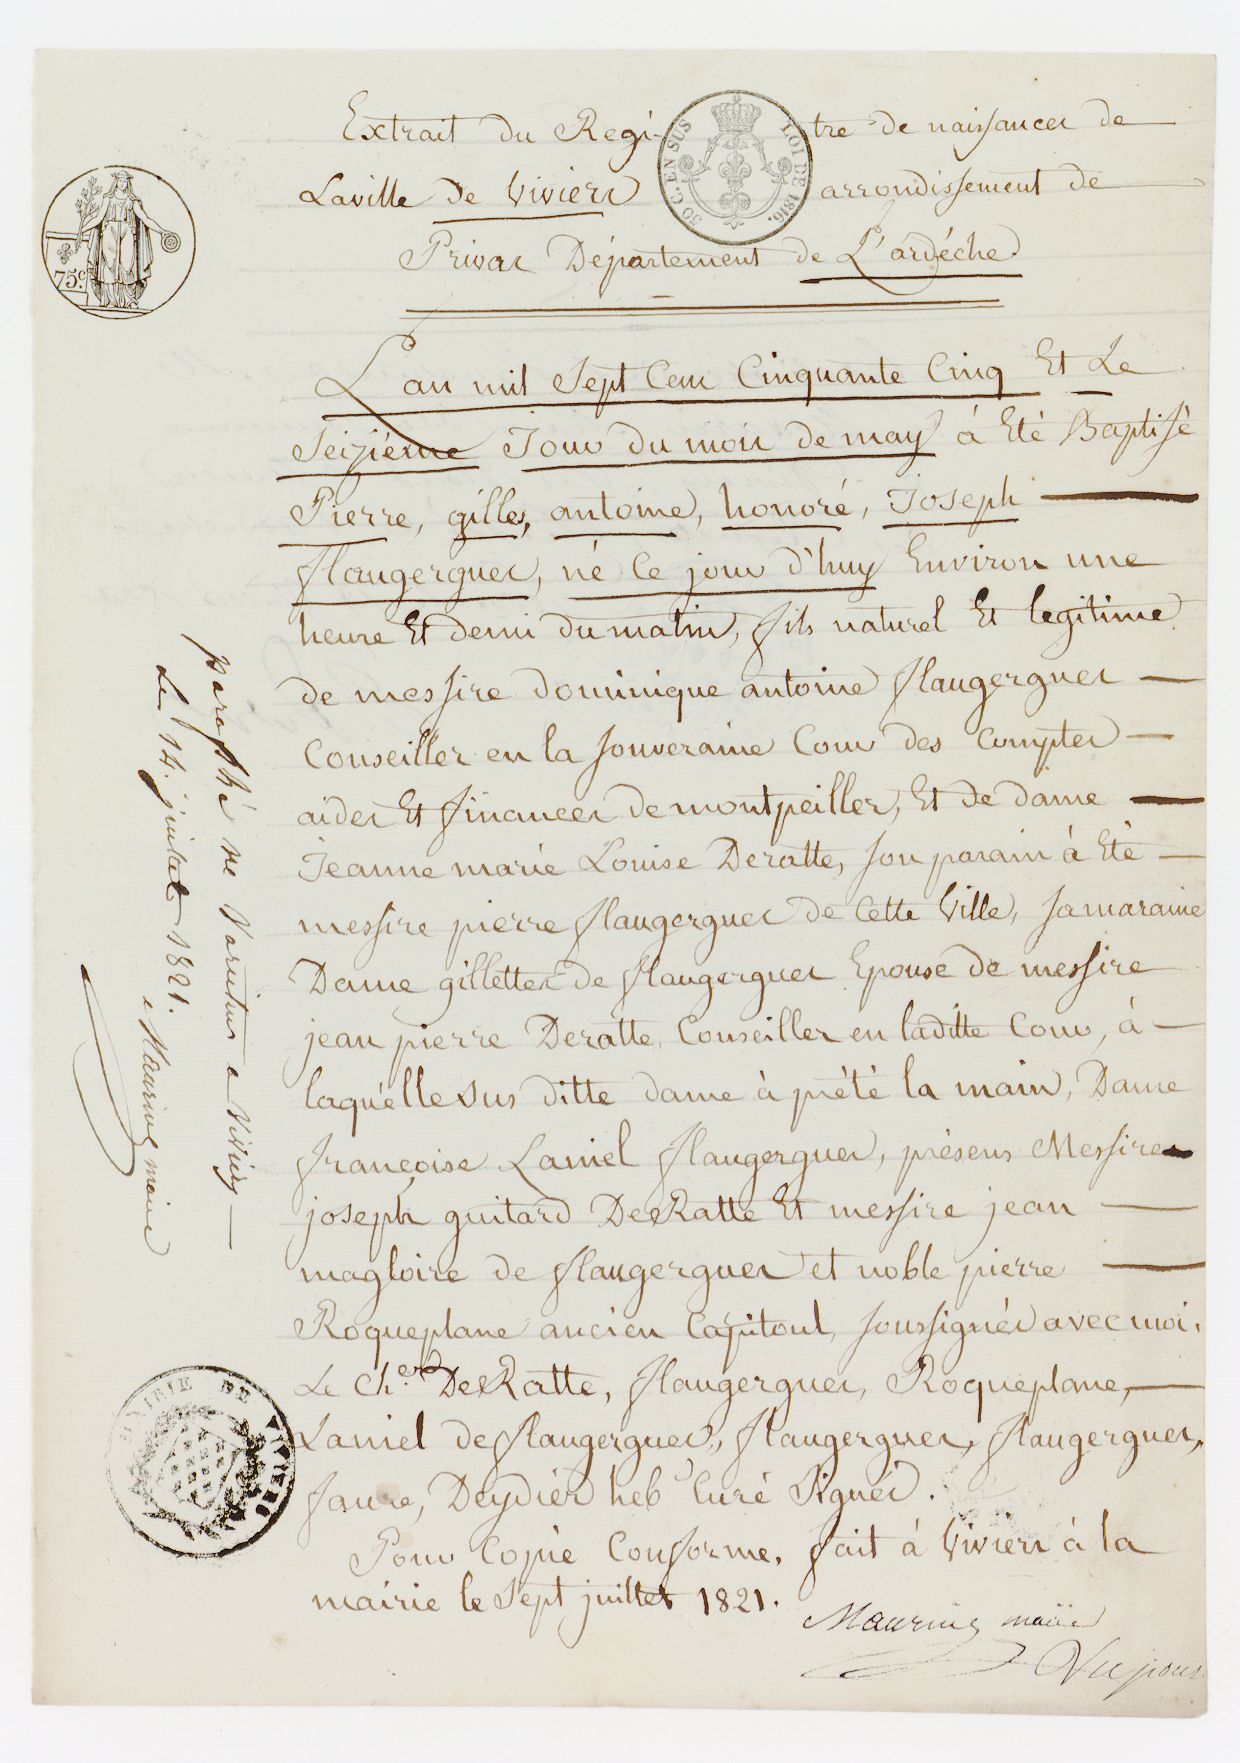 Extrait du Regi- tre de naissances de
Laville de Viviers arrondissement de
Privas Département de L'ardéche
30 C. EN SUS LOI DE 1816.
75c
L'an mil Sept Cens Cinquante Cinq Et Le
Seiziéme Jour du mois de may à Eté Baptisé
Pierre, gilles, antoine, honoré, Joseph
flaugergues, né Ce jour d'huy Environ une
heure Et demi du matin, fils naturel Et legitime
de messire dominique antoine flaugergues
Conseiller en la souveraine Cour des Comptes
aides Et finances de montpeiller, Et de dame
Jeanne marie Louise Deratte, son parain à Eté
messire pierre flaugergues de Cette Ville, sa maraine
Dame gillettes de flaugergues Epouse de messire
jean pierre Deratte, Conseiller en laditte Cour, à
laquélle sus ditte dame à prété la main, Dame
françoise Laniel flaugergues, présens Messires
joseph guitard DeRatte Et messire jean
magloire de flaugergues et noble pierre
Roqueplane ancien Capitoul, soussignés avec moi.
Le Ch.er DeRatte, flaugergues, Roqueplane,
Laniel de flaugergues, flaugergues, flaugergues,
faure, Deydier heb.' Curé Signés.
Pour Copie Conforme. fait à Viviers à la
mairie le Sept juillet 1821.
Maurin maire
Vu pour
paraphé ne Varietur a Viviers
Le 14 juillet 1821.
Maurin maire
MAIRIE DE VIVIERS